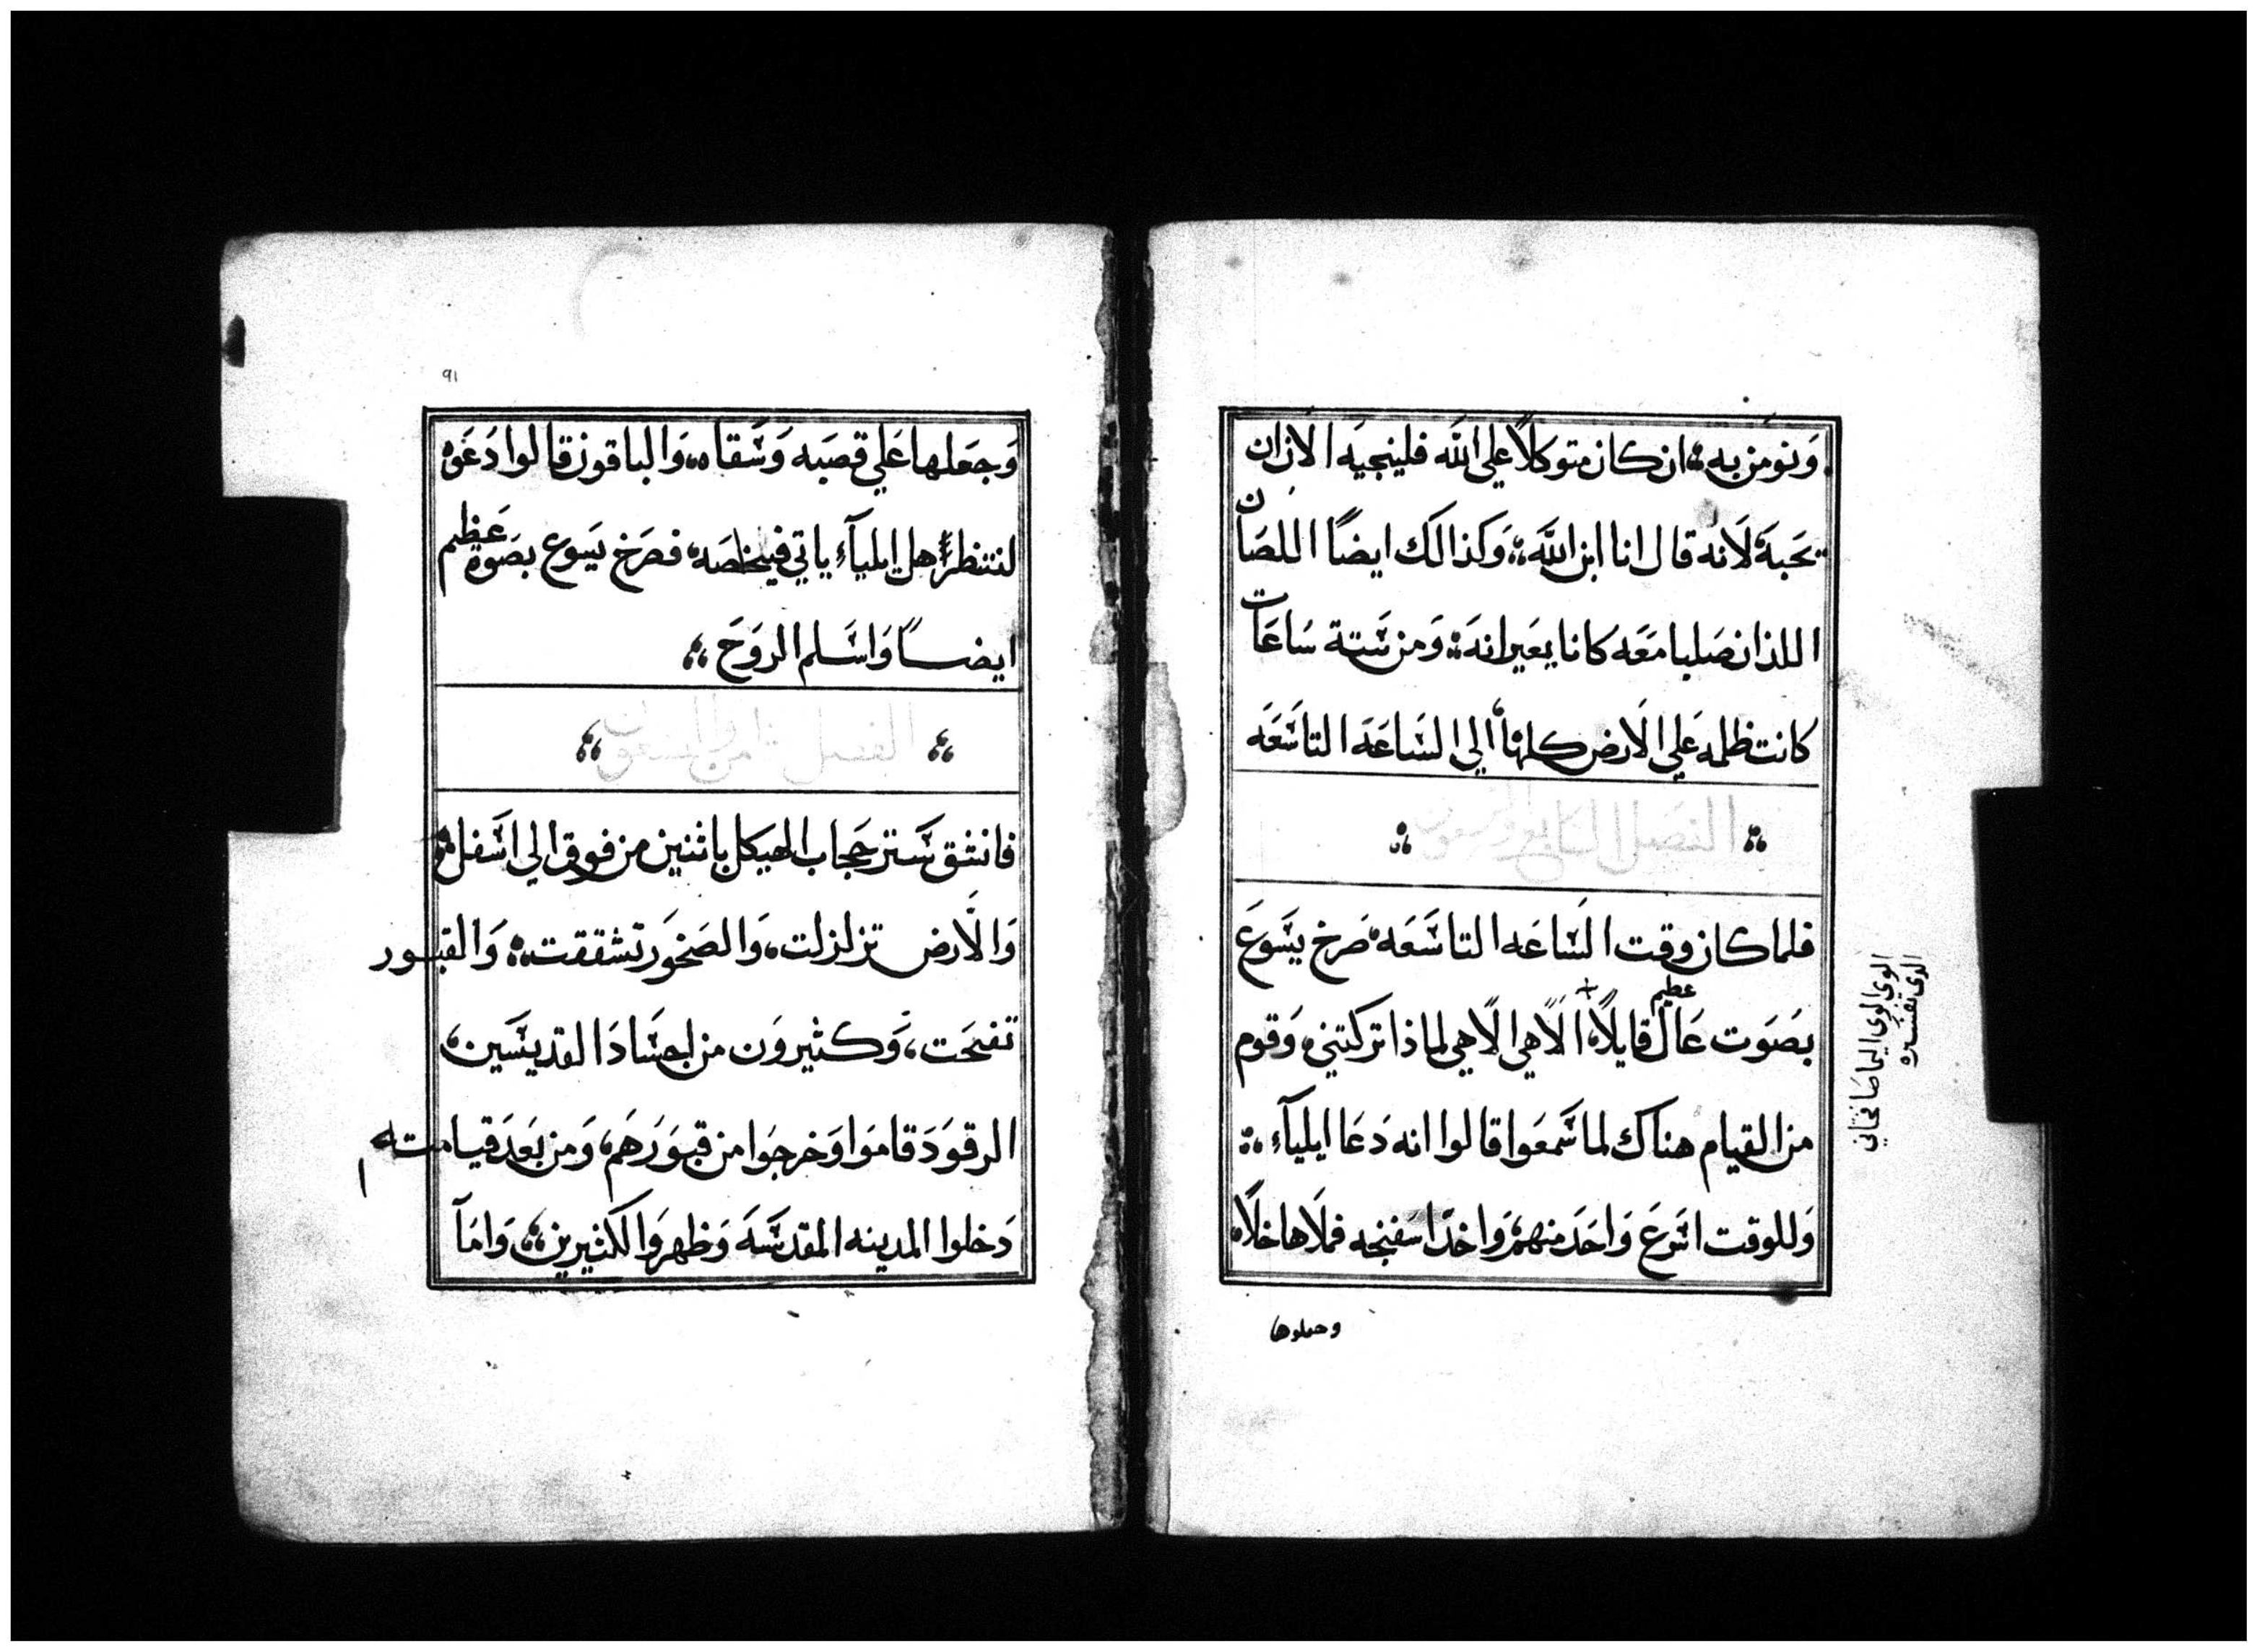 ونومن به، ان كان متوكلاً علي الله فلينجيه الان ان
يحبه لانه قال انا ابن الله، وكذالك ايضًا اللصان
اللذان صلبا معه كانا يعيرانه، ومن ستة ساعات
كانت ظلمه علي الارض كلها الي الساعه التاسعه
الفصل السابع والسعون
فلما كان وقت الساعه التاسعه صرخ يسوع
بصوت عال عظيم قايلاً، الاهي الاهي لماذا تركتني، وقوم
من القيام هناك لما سمعوا قالوا انه دعا ايلياء،
وللوقت اسرع واحد منهم، واخد اسفنجه فملاها خلاً
وحملوها
الوي الوي اليما صاختاني
الدي تفسره
٩١
وجعلها علي قصبه وسقاه، والباقون قالوا دعوه
لننتظر هل ايلياء ياتي فيخلصه، فصرخ يسوع بصوة عظيم
ايضًا واسلم الروح،
الفصل
فانشق ستر حجاب الهيكل باثنين من فوق الي اسفل
والارض تزلزلت، والصخور تشققت، والقبور
تفتحت، وكثيرون من اجساد القديسين،
الرقود قاموا وخرجوا من قبورهم، ومن بعد قيامتهم
دخلوا المدينه المقدسه وظهروا لكثيرين، واما